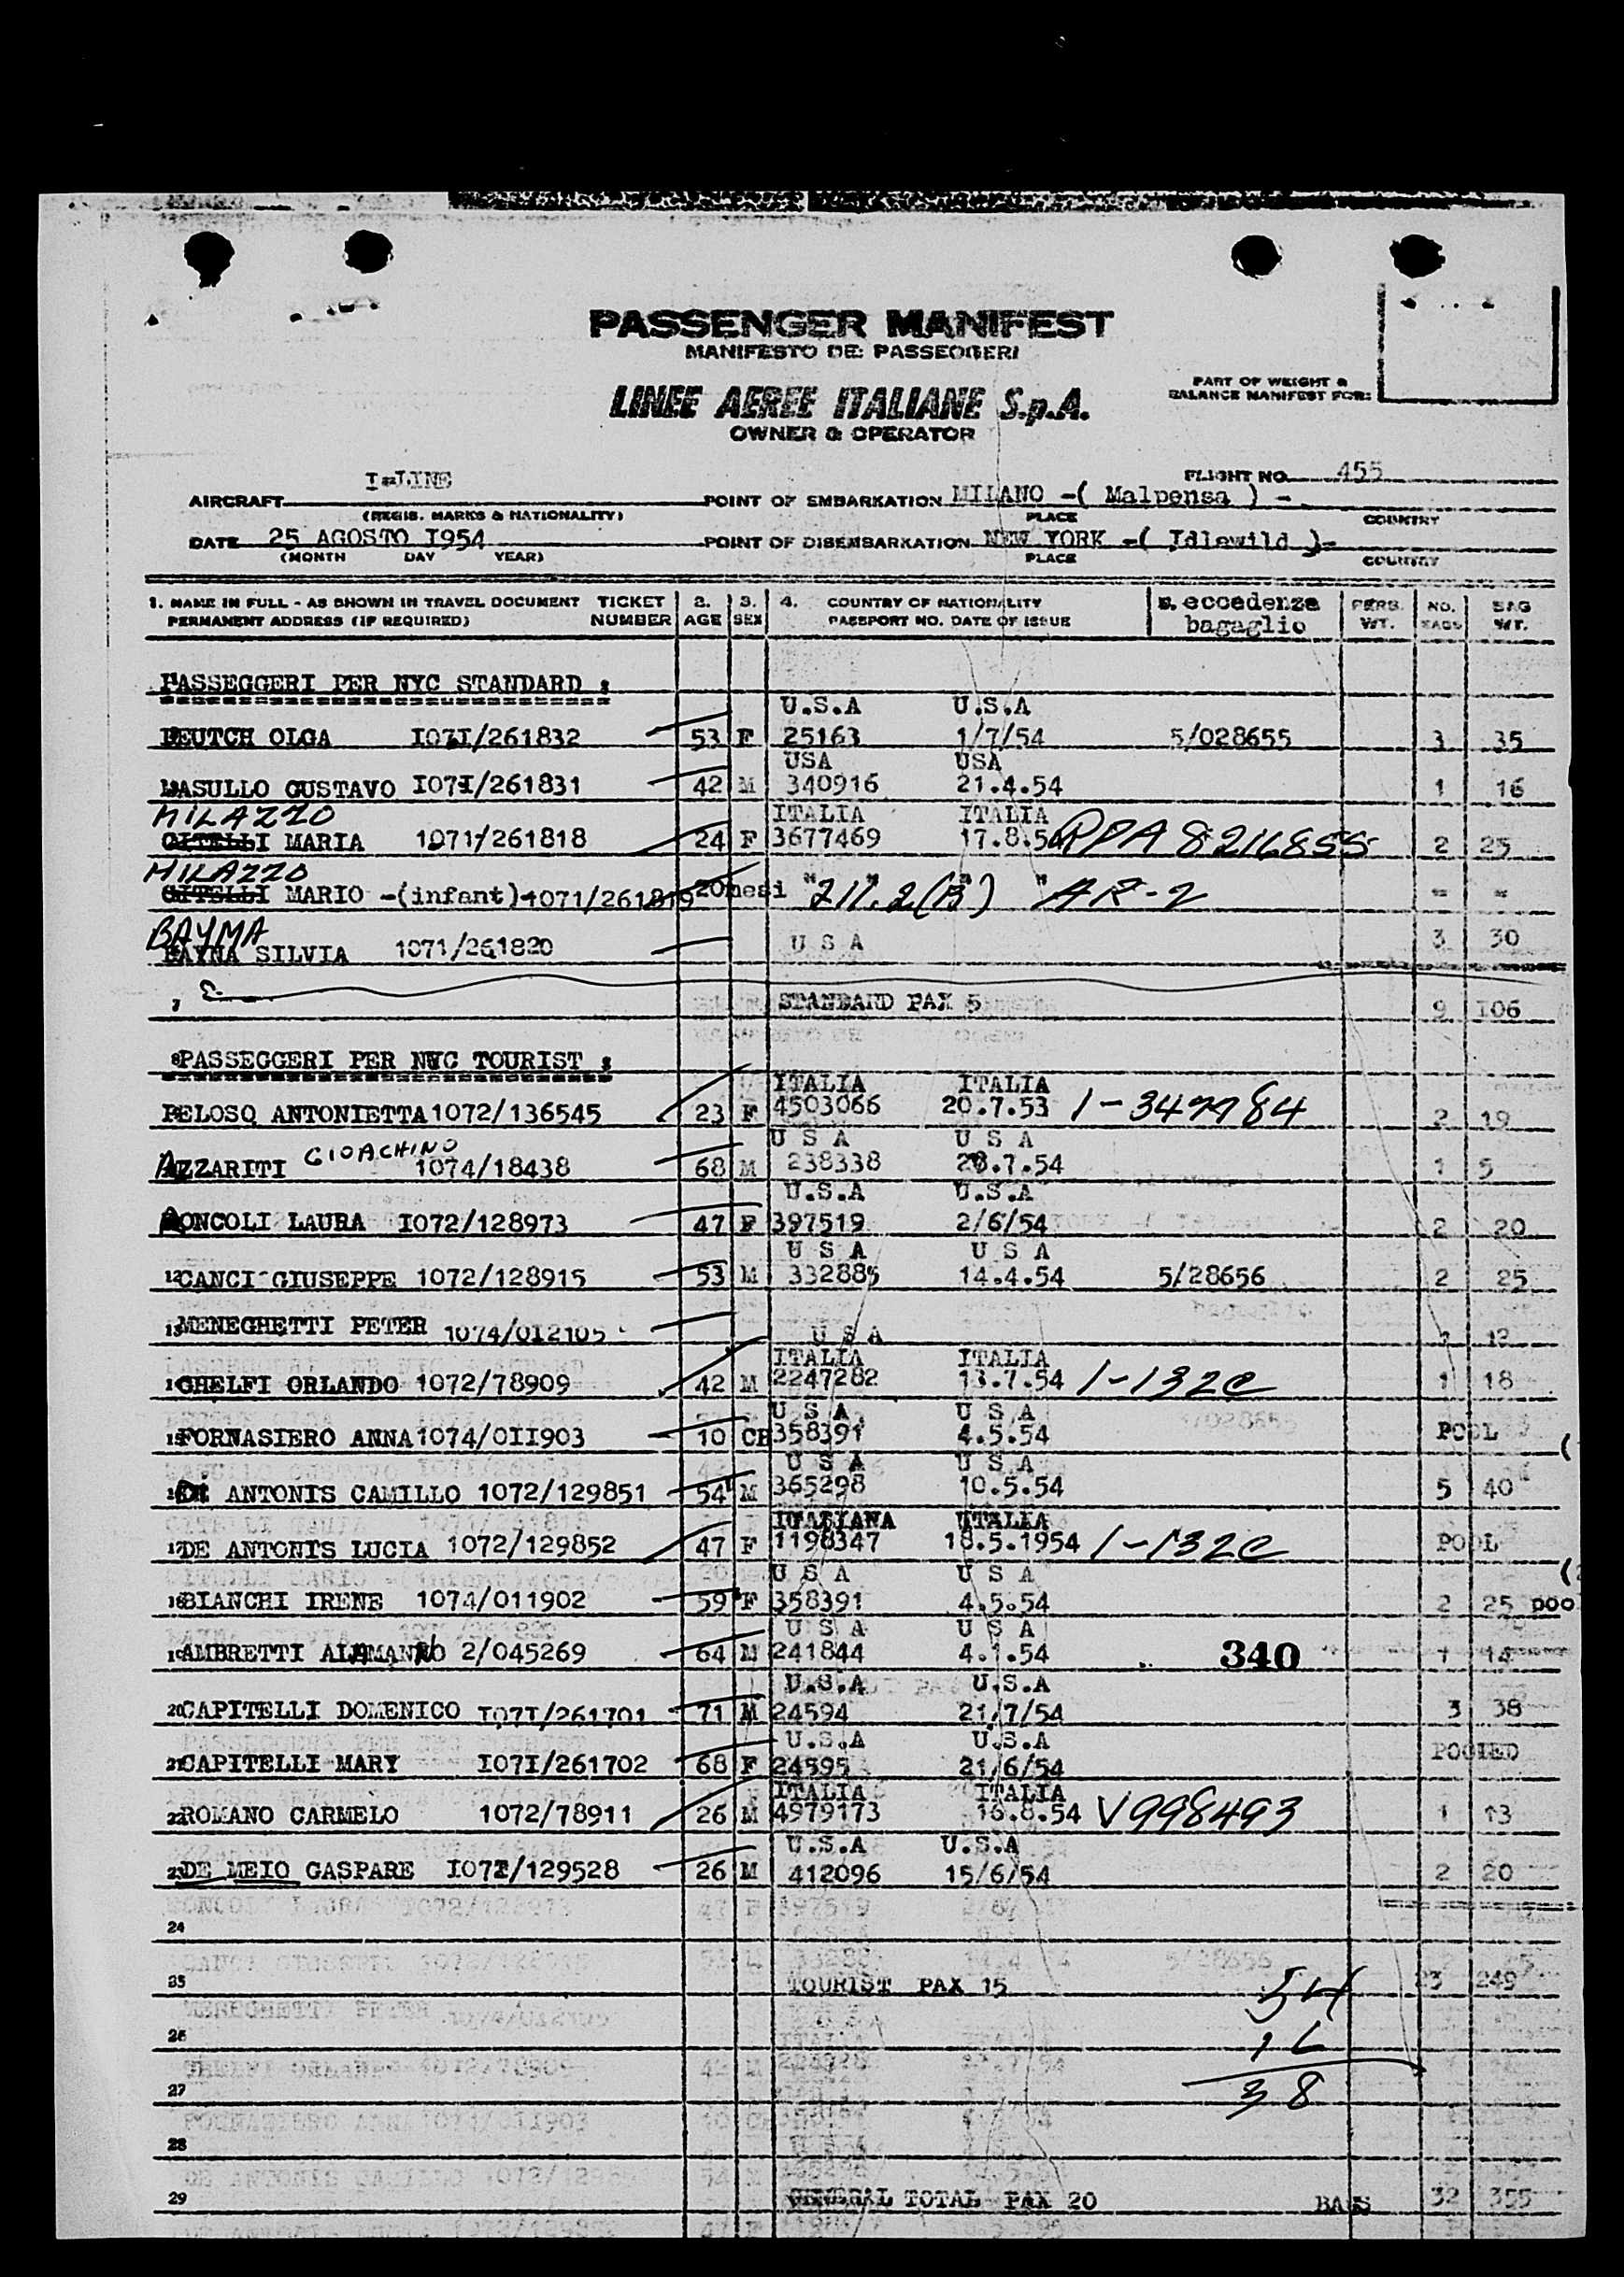 PASSENGER MANIFEST
MANIFESTO DEI PASSEGGERI
LINEE AEREE ITALIANE S.p.A.
OWNER & OPERATOR
PART OF WEIGHT &
BALANCE MANIFEST FOR:
AIRCRAFT I-LINE POINT OF EMBARKATION MILANO -( Malpensa ) - FLIGHT NO. 455
(REGIS. MARKS & NATIONALITY) PLACE COUNTRY
DATE 25 AGOSTO I954 POINT OF DISEMBARKATION NEW YORK -( Idlewild )-
(MONTH DAY YEAR) PLACE COUNTRY
1. NAME IN FULL - AS SHOWN IN TRAVEL DOCUMENT TICKET 2. 3. 4. COUNTRY OF NATIONALITY s. eccedenza PERS. NO. BAG
PERMANENT ADDRESS (IF REQUIRED) NUMBER AGE SEX PASSPORT NO. DATE OF ISSUE bagaglio WT. BAGS WT.
PASSEGGERI PER NYC STANDARD :
U.S.A U.S.A
DEUTCH OLGA I07I/261832 53 F 25163 1/7/54 5/028655 3 35
USA USA
MASULLO GUSTAVO I071/261831 42 M 340916 21.4.54 1 16
MILAZZO ITALIA ITALIA
CITELLI MARIA 1071/261818 24 F 3677469 17.8.54 PPA 8216855 2 25
MILAZZO
CITELLI MARIO -(infant)-1071/261819 20mesi " " 211.2(B) " AR-2 = =
BAYMA
BAYNA SILVIA 1071/261820 U S A 3 30
7 STANDARD PAX 5 9 I06
8 PASSEGGERI PER NYC TOURIST :
ITALIA ITALIA
PELOSO ANTONIETTA 1072/136545 23 F 4503066 20.7.53 1-347784 2 19
U S A U S A
AZZARITI GIOACHINO 1074/18438 68 M 238338 28.7.54 1 5
U.S.A U.S.A
RONCOLI LAURA I072/128973 47 F 397519 2/6/54 2 20
U S A U S A
12 CANCI GIUSEPPE 1072/128915 53 M 332885 14.4.54 5/28656 2 25
13 MENEGHETTI PETER 1074/0I2105 U S A 12
ITALIA ITALIA
GHELFI ORLANDO 1072/78909 42 M 2247282 13.7.54 1-132C 1 18
U S A U S A
15 FORNASIERO ANNA 1074/0II903 10 CH 358391 4.5.54 POOL
U S A U S A
DE ANTONIS CAMILLO 1072/129851 54 M 365298 10.5.54 5 40
ITALIANA ITALIA
17 DE ANTONIS LUCIA 1072/129852 47 F 1198347 18.5.1954 1-132C POOL
U S A U S A
18 BIANCHI IRENE 1074/011902 59 F 358391 4.5.54 2 25 poo
U S A U S A
19 AMBRETTI ALAMANNO 2/045269 64 M 241844 4.1.54 340 1 14
U.S.A U.S.A
20 CAPITELLI DOMENICO I07I/261701 71 M 24594 21/7/54 3 38
U.S.A U.S.A
21 CAPITELLI MARY I07I/261702 68 F 24595 21/6/54 POOLED
ITALIA ITALIA
22 ROMANO CARMELO 1072/78911 26 M 4979173 16.8.54 V998493 1 13
U.S.A U.S.A
23 DE MEIO GASPARE I072/129528 26 M 412096 15/6/54 2 20
24
25 TOURIST PAX 15 23 249
54
26
16
27
38
28
29 GENERAL TOTAL PAX 20 BAGS 32 355